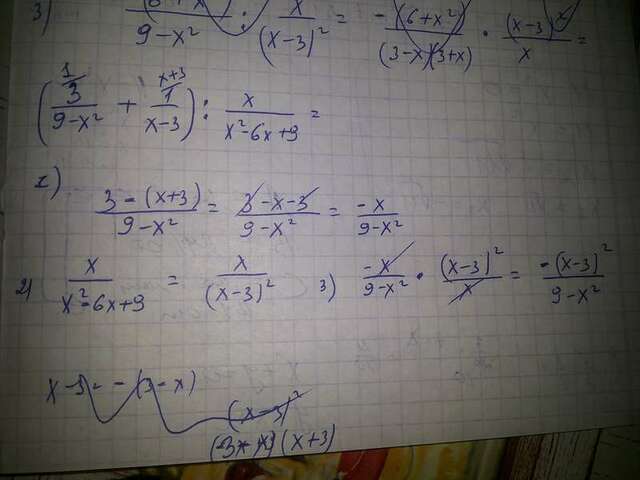 3) (6+x²)/(9-x²) : x/(x-3)² = -(6+x²)/((3-x)(3+x)) · (x-3)²/x =
(3/(9-x²) + 1/(x-3)) : x/(x²-6x+9) =
1) (3-(x+3))/(9-x²) = (3-x-3)/(9-x²) = -x/(9-x²)
2) x/(x²-6x+9) = x/(x-3)² 3) -x/(9-x²) · (x-3)²/x = -(x-3)²/(9-x²)
(x-3)²
(x+3)